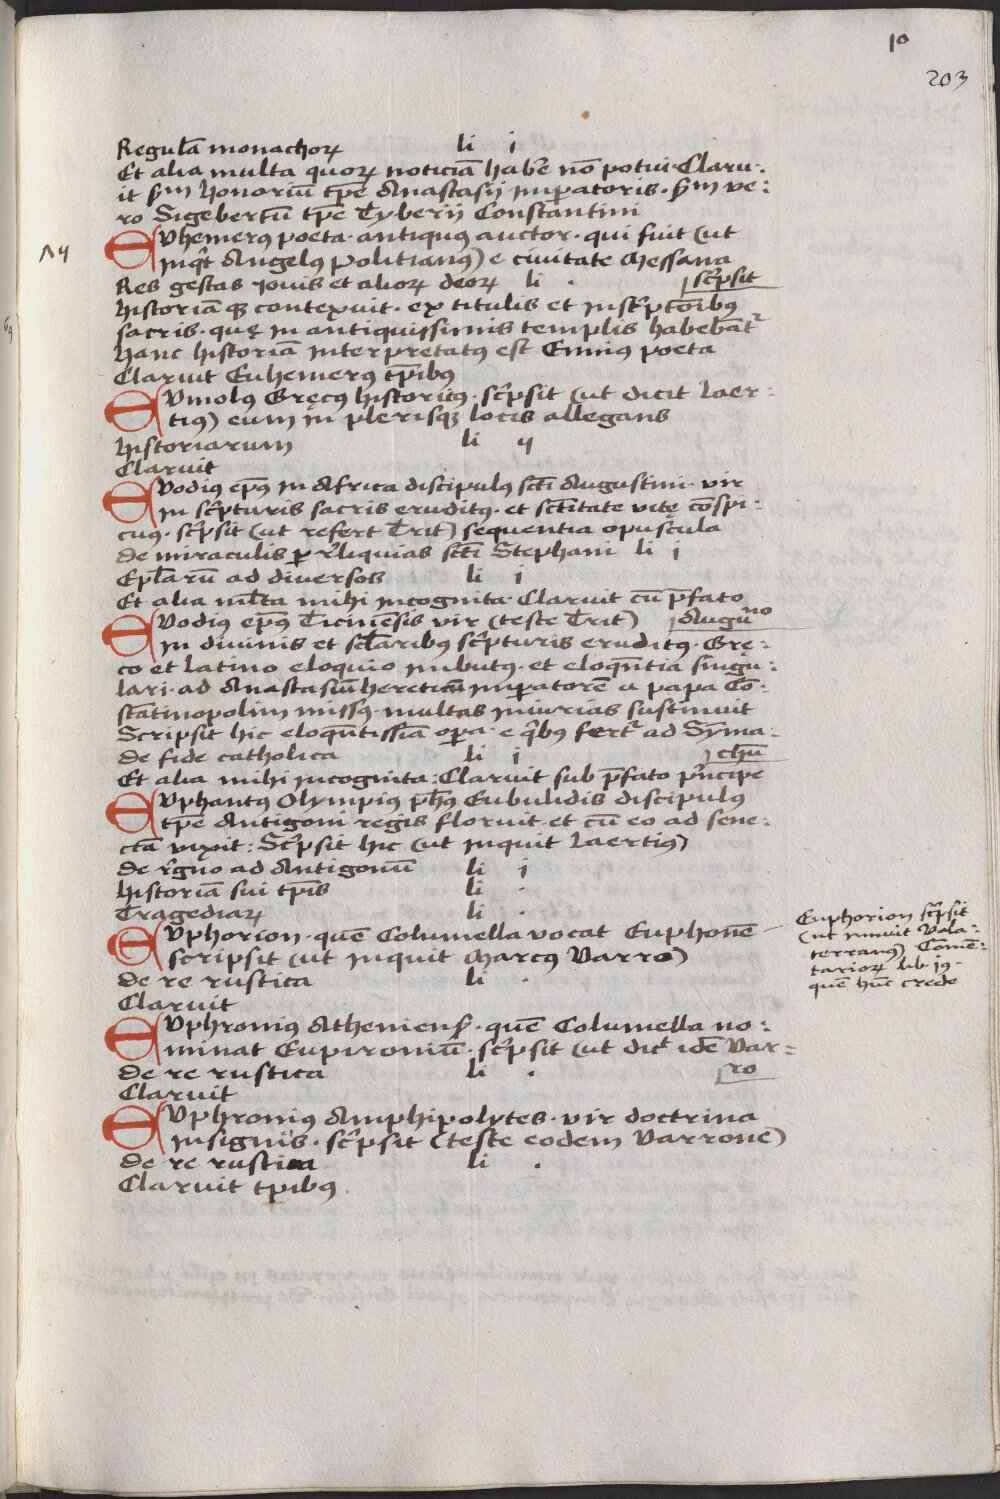 10
203
Regula͞ monachoꝝ li i
Et alia multa quoꝝ noticia͞ habe͞ no͞ potui. Claru:
it s͞m honoriu͞ tp͞e Anastasij imp͞atoris. s͞m ve:
ro Sigebertu͞ tp͞e Tyberij Constantini
EVhemerꝰ poeta. antiquꝰ auctor. qui fuit (ut
inq͞t Angelꝰ Politianꝰ) e civitate Messana
Res gestas Iovis et alioꝝ deoꝝ li . scʼpsit
historia͞ qꝫ contexuit. ex titulis et inscʼpto͞ibꝰ
sacris. quę in antiquissimis templis habeba͞tʳ
hanc historia͞ interpretatꝰ est Ennius poeta
Claruit Euhemerꝰ tp͞ibꝰ
EVmolꝰ Gręcꝰ historicꝰ. scʼpsit (ut dicit Laer:
tiꝰ) eum in plerisqꝫ locis allegans
historiarum li ij
Claruit
EVodiꝰ ep͞us in Africa discipulꝰ sc͞ti Augustini. vir
in scʼpturis sacris eruditꝰ. et sc͞titate vitę co͞spi:
cuꝰ. scʼpsit (ut refert Trit) sequentia opuscula
de miraculis ꝑ rʼliquias sc͞ti Stephani li i
Ep͞laru͞ ad diversos li i
Et alia ml͞ta mihi incognita. Claruit cu͞ p͞fato
EVodiꝰ ep͞us Ticine͞sis vir (teste Trit) Auguⁿᵒ
in divinis et sc͞laribus scʼpturis eruditꝰ. Gre:
co et latino eloquio imbutꝰ. et eloq͞ntia singu:
lari. ad Anastasiu͞ hereticu͞ imp͞atore͞ a papa Co͞:
sta͞tinopolim missꝰ. multas iniurias sustinuit
Scripsit hic eloqu͞tissi͞a op͞a. e qʼbus fertʳ ad Syma:
de fide catholica li i chu͞
Et alia mihi incognita: Claruit sub p͞fato pʼncipe
EVphantꝰ Olympiꝰ ph͞us Eubulidis discipulꝰ
tp͞e Antigoni regis floruit et cu͞ eo ad sene:
cta͞ vixit: Scʼpsit hic (ut inquit Laertiꝰ)
de rʼgno ad Antigonu͞ li i
historia͞ sui tp͞is li .
Tragediaꝝ li .
EVphorion. que͞ Columella vocat Euphone͞
scripsit (ut inquit Marcꝰ Varro)
de re rustica li .
Claruit
Euphorion scʼpsit
(ut innuit Vola:
terranꝰ) Come͞:
tarioꝝ lib. 19.
que͞ hu͞c crede
EVphroniꝰ Atheniens͛. que͞ Columella no:
minat Eupironiu͞. scʼpsit (ut dic͛t ide͞ Var=
de re rustica li . ro
Claruit
EVphroniꝰ Amphipolytes. vir doctrina
insignis. scʼpsit (teste eodem Varrone)
de re rustica li .
Claruit tp͞ibꝰ